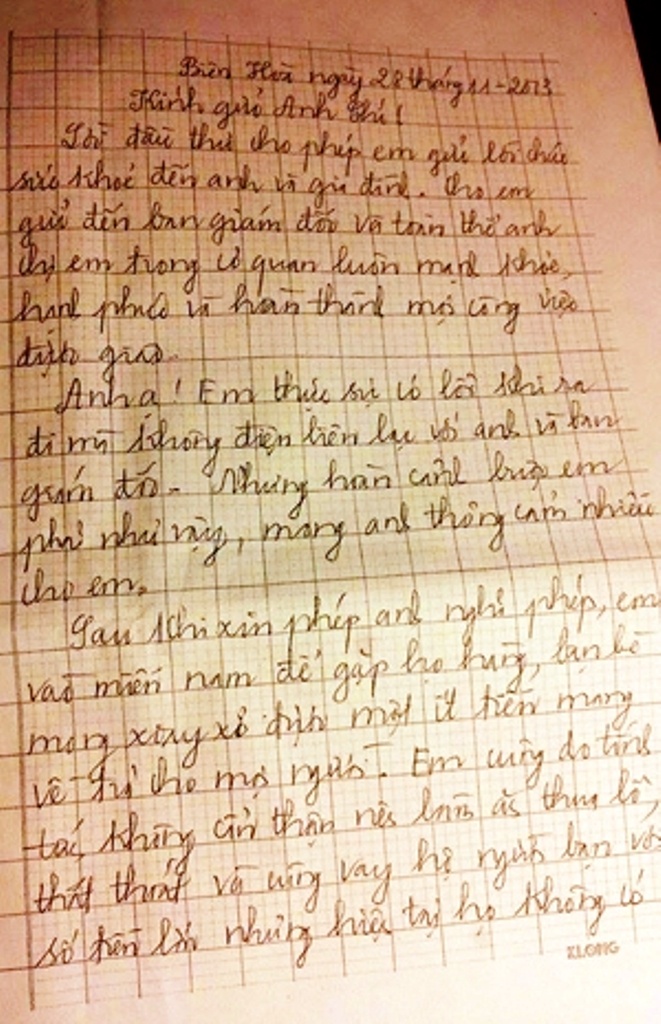 Biên Hoà ngày 28 tháng 11-2013
Kính gửi Anh Chí!
Lời đầu thư cho phép em gửi lời chúc
sức khoẻ đến anh và gia đình. Cho em
gửi đến ban giám đốc và toàn thể anh
chị em trong cơ quan luôn mạnh khoẻ,
hạnh phúc và hoàn thành mọi công việc
được giao.
Anh ạ! Em thực sự có lỗi khi ra
đi mà không điện liên lạc với anh và ban
giám đốc. Nhưng hoàn cảnh buộc em
phải như vậy, mong anh thông cảm nhiều
cho em.
Sau khi xin phép anh nghỉ phép, em
vào miền nam để gặp họ hàng, bạn bè
mong xoay xở được một ít tiền mang
về trả cho mọi người. Em cũng do tính
tác không cẩn thận nên làm ăn thua lỗ,
thất thoát và cũng vay hộ người bạn với
số tiền lớn nhưng hiện tại họ không có
KLONG